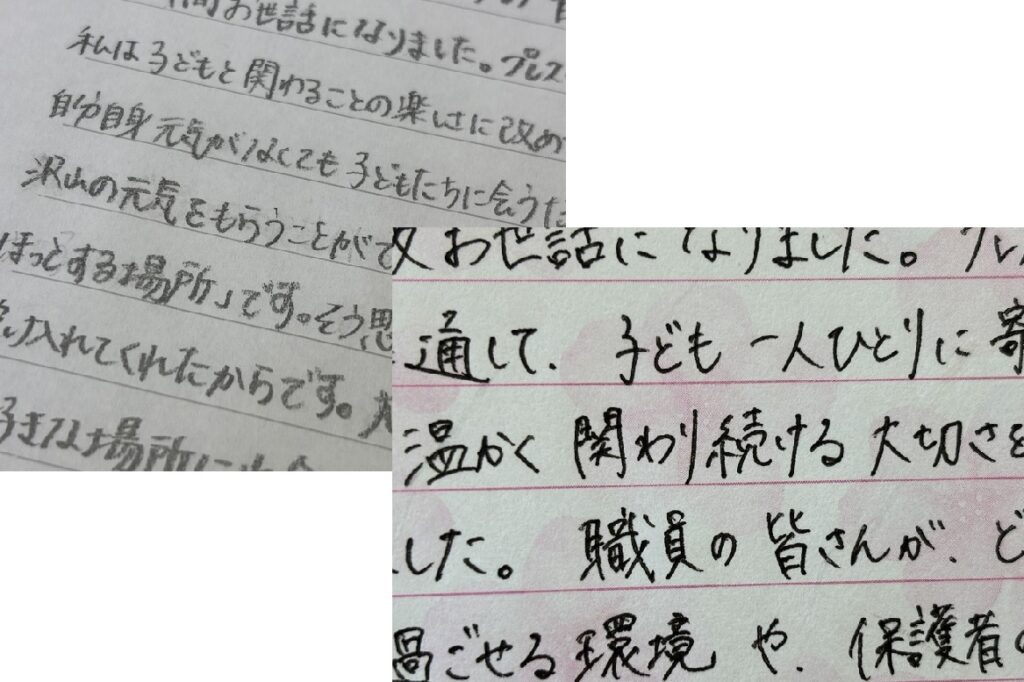 お世話になりました。プレス
私は子どもと関わることの楽しさに改め
自分自身元気がなくても子どもたちに会うた
沢山の元気をもらうことがで
ほっとする場所」です。そう思
入れてくれたからです。
好きな場所に
お世話になりました。プレ
通して、子ども一人ひとりに寄
温かく関わり続ける大切さを
した。職員の皆さんが、ど
過ごせる環境や、保護者の